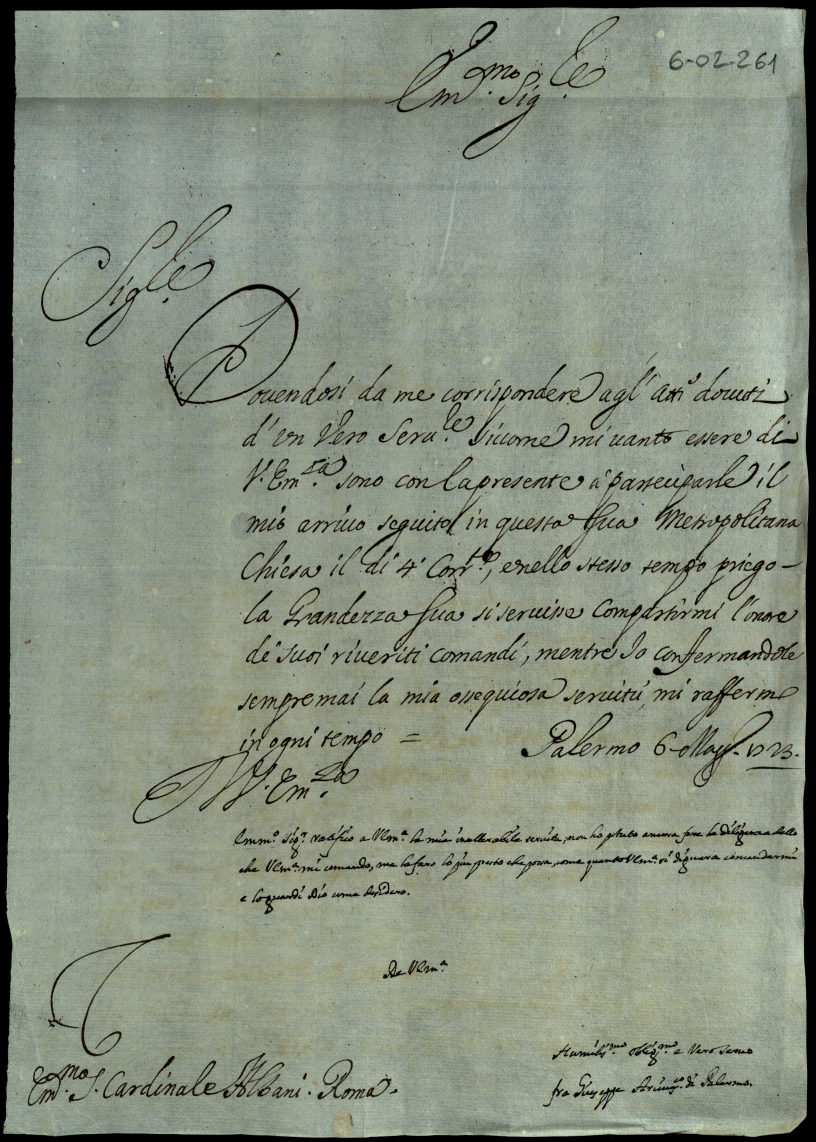 6-02-261
Em.mo Sig.re
Sig.re
Dovendosi da me corrispondere agl' atti dovuti
d' un Vero Serv.re sicome mi vanto essere di
V. Em.za sono con la presente à parteciparle il
mio arrivo seguito in questa sua Metropolitana
Chiesa il di 4 Corr.te, e nello stesso tempo priego
la Grandezza Sua si servisse compartirmi l'onore
de' suoi riveriti comandi, mentre Io confermandole
sempremai la mia ossequiosa servitù, mi raffermo
in ogni tempo =
Palermo 6 Magg. 1723.
D V. Em.za
Emm.o Sig.r ratifico a V Em.a la mia inalterabile servitu, non ho potuto ancora fare la diligenza della
che V Em.a mi comando, ma la faro lo piu presto che possa, come quando V Em.a si dignara comandarmi
e lo guardi Dio come desidero.
De V Em.a
Em.mo S. Cardinale Albani. Roma.
Humilis.mo oblig.mo e Vero Servo
fra Giuseppe Arciv.o di Palermo.